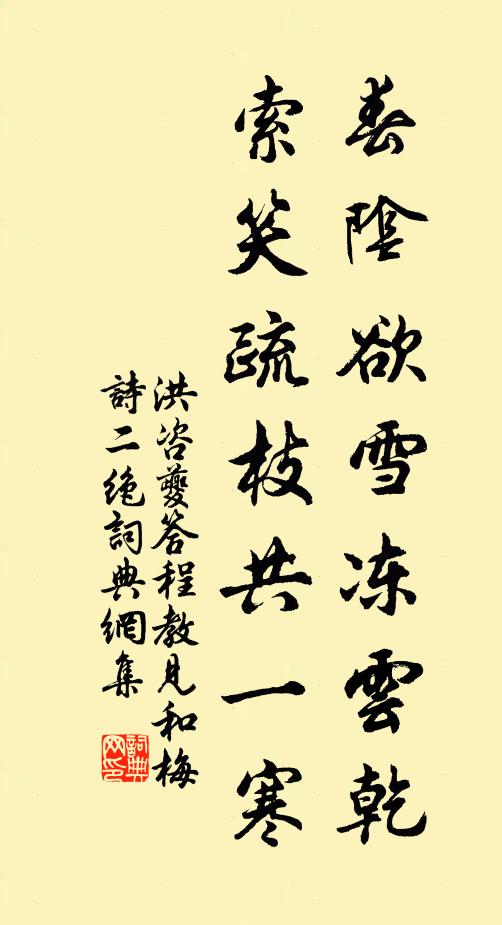 春陰欲雪冻雲乾
索笑疏枝共一寒
洪咨夔答程教見和梅
詩二絶詞典網集
詞典網印